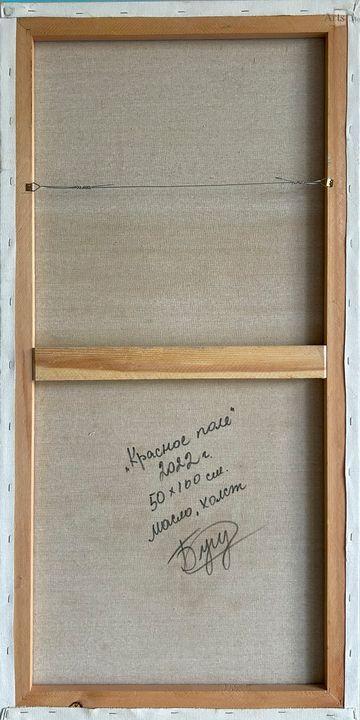 „Красное поле"
2022 г.
50 x 100 см.
Масло, холст